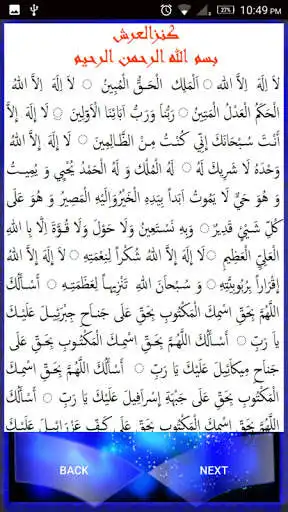 27% 10:49 PM
كنزالعرش
بسم الله الرحمن الرحيم
لاَ إِلَهَ إِلاَّ الله اَلْمَلِك الْحَقُّ الْمُبِينُ لاَ إِلَهَ إِلاَّ اللهُ
الْحَكَمُ الْعَدْلُ الْمَتِينُ رَبُّنَا وَرَبُّ آبَائِنَا الْاَوَّلِينَ لَا إِلَهَ إِلاَّ
أَنْتَ سُبْحَانَكَ إِنِّي كُنْتُ مِنَ الظَّالِمِينَ لَا إِلَهَ إِلاَّ اللهُ
وَحْدَهُ لَا شَرِيكَ لَهُ لَهُ الْمُلْكُ وَ لَهُ الْحَمْدُ يُحْيِي وَ يُمِيتُ
وَ هُوَ حَيٌّ لَا يَمُوتُ اَبَداً بِيَدِهِ الْخَيْرُوَإِلَيْهِ الْمَصِيرُ وَ هُوَ عَلَى
كُلِّ شَيْئٍ قَدِيرٌ وَبِهِ نَسْتَعِينُ وَلَا حَوْلَ وَلَا قُوَّةَ إِلَّا بِا للهِ
الْعَلِيِّ الْعَظِيمِ لَا إِلَهَ إِلاَّ اللهُ شُكْراً لِنِعْمَتِهِ لَا إِلَهَ إِلاَّ اللهُ
إِقْرَاراً بِرُبُوبِيَّتِهِ وَ سُبْحَانَ اللهِ تَنْزِيهاً لِعَظَمَتِهِ أَسْأَلُكَ
اللَّهُمَّ بِحَقِّ اسْمِكَ الْمَكْتُوبِ بِحَقِّ عَلَى جَنَاحِ جِبْرَئِيلَ عَلَيْكَ
يَا رَبِّ أَسْأَلُكَ اللَّهُمَّ بِحَقِّ اسْمِكَ الْمَكْتُوبِ بِحَقِّ عَلَى
جَنَاحِ مِيكَائِيلَ عَلَيْكَ يَا رَبِّ أَسْأَلُكَ اللَّهُمَّ بِحَقِّ اسْمِكَ
الْمَكْتُوبِ بِحَقِّ عَلَى جَبْهَةِ إِسْرَافِيلَ عَلَيْكَ يَا رَبِّ أَسْأَلُكَ
اللَّهُمَّ بِحَقِّ اسْمِكَ الْمَكْتُوبِ بِحَقِّ عَلَى كَفِّ عَزْرَائِيلَ عَلَيْكَ
BACK NEXT